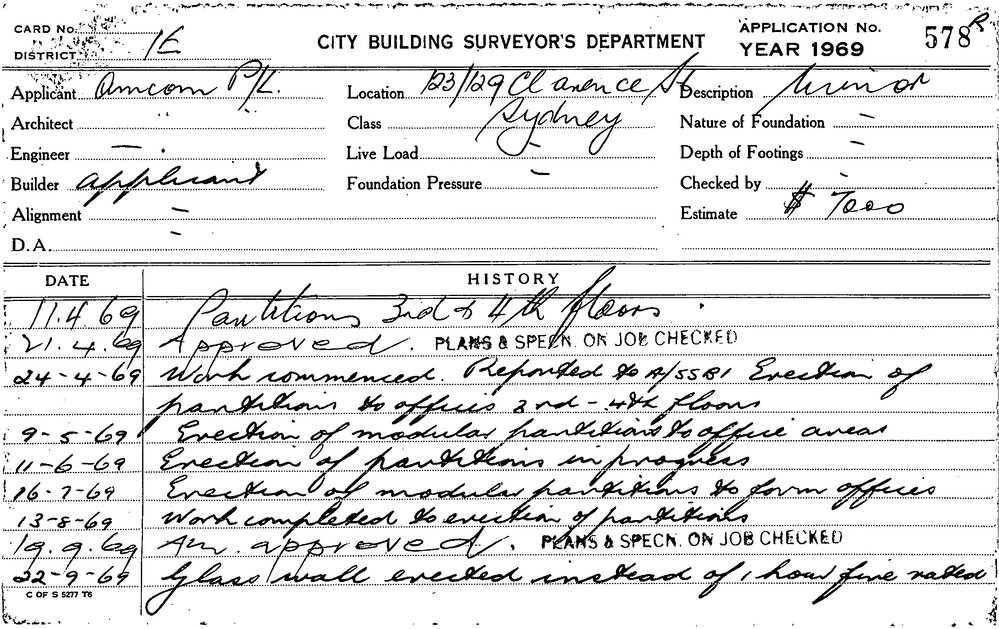 CARD No.
DISTRICT 1E
CITY BUILDING SURVEYOR'S DEPARTMENT
APPLICATION No. 578 R
YEAR 1969
Applicant Amcom P/L. Location 123/129 Clarence St Description Minor
Architect Class Sydney Nature of Foundation —
Engineer — . Live Load — Depth of Footings —
Builder applicant Foundation Pressure — Checked by -
Alignment — Estimate $ 7000
D.A. -
DATE HISTORY
11.4.69 Partitions 3rd & 4th floors.
21.4.69 Approved. PLANS & SPECN. ON JOB CHECKED
24-4-69 Work commenced. Reported to A/SSBI Erection of
partitions to offices 3rd - 4th floors
9-5-69 Erection of modular partitions to office areas
11-6-69 Erection of partitions in progress
16-7-69 Erection of modular partitions to form offices
13-8-69 Work completed to erection of partitions
19.9.69 Am. approved. PLANS & SPECN. ON JOB CHECKED
22-9-69 Glass wall erected instead of 1 hour fire rated
C OF S 5277 T6